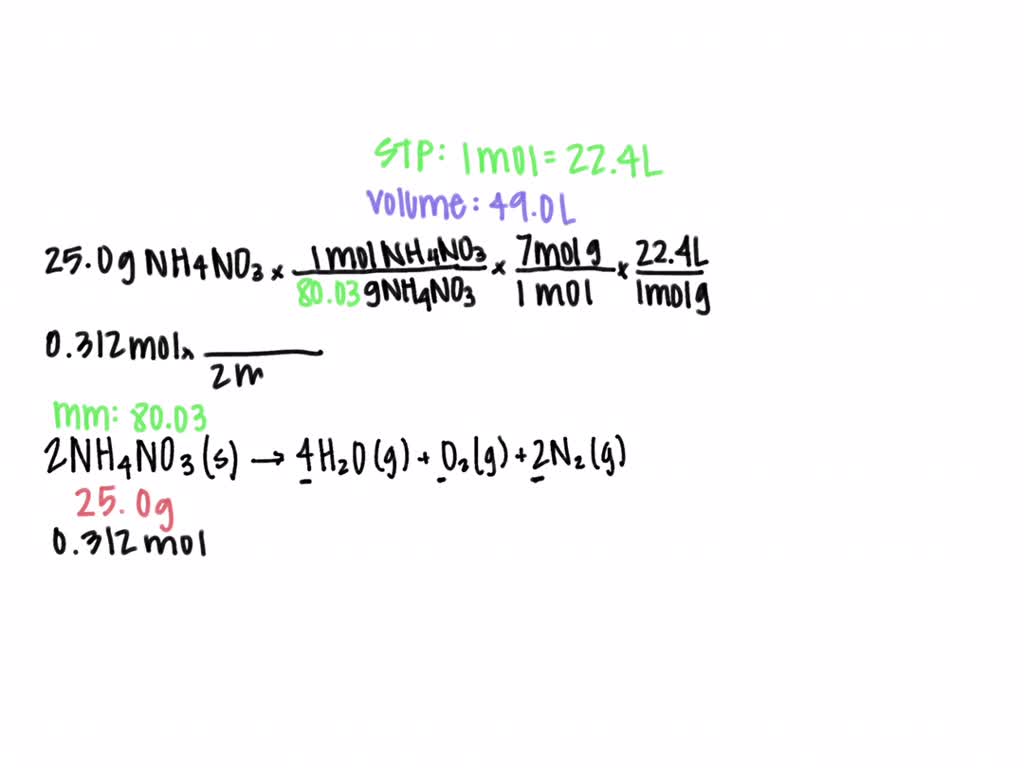 STP: 1mol = 22.4L
Volume: 49.0L
25.0g NH4NO3 x 1molNH4NO3 / 80.03 gNH4NO3 x 7molg / 1mol x 22.4L / 1molg
0.312mol x ___ / 2m
mm: 80.03
2NH4NO3(s) → 4H2O(g) + O2(g) + 2N2(g)
25.0g
0.312mol